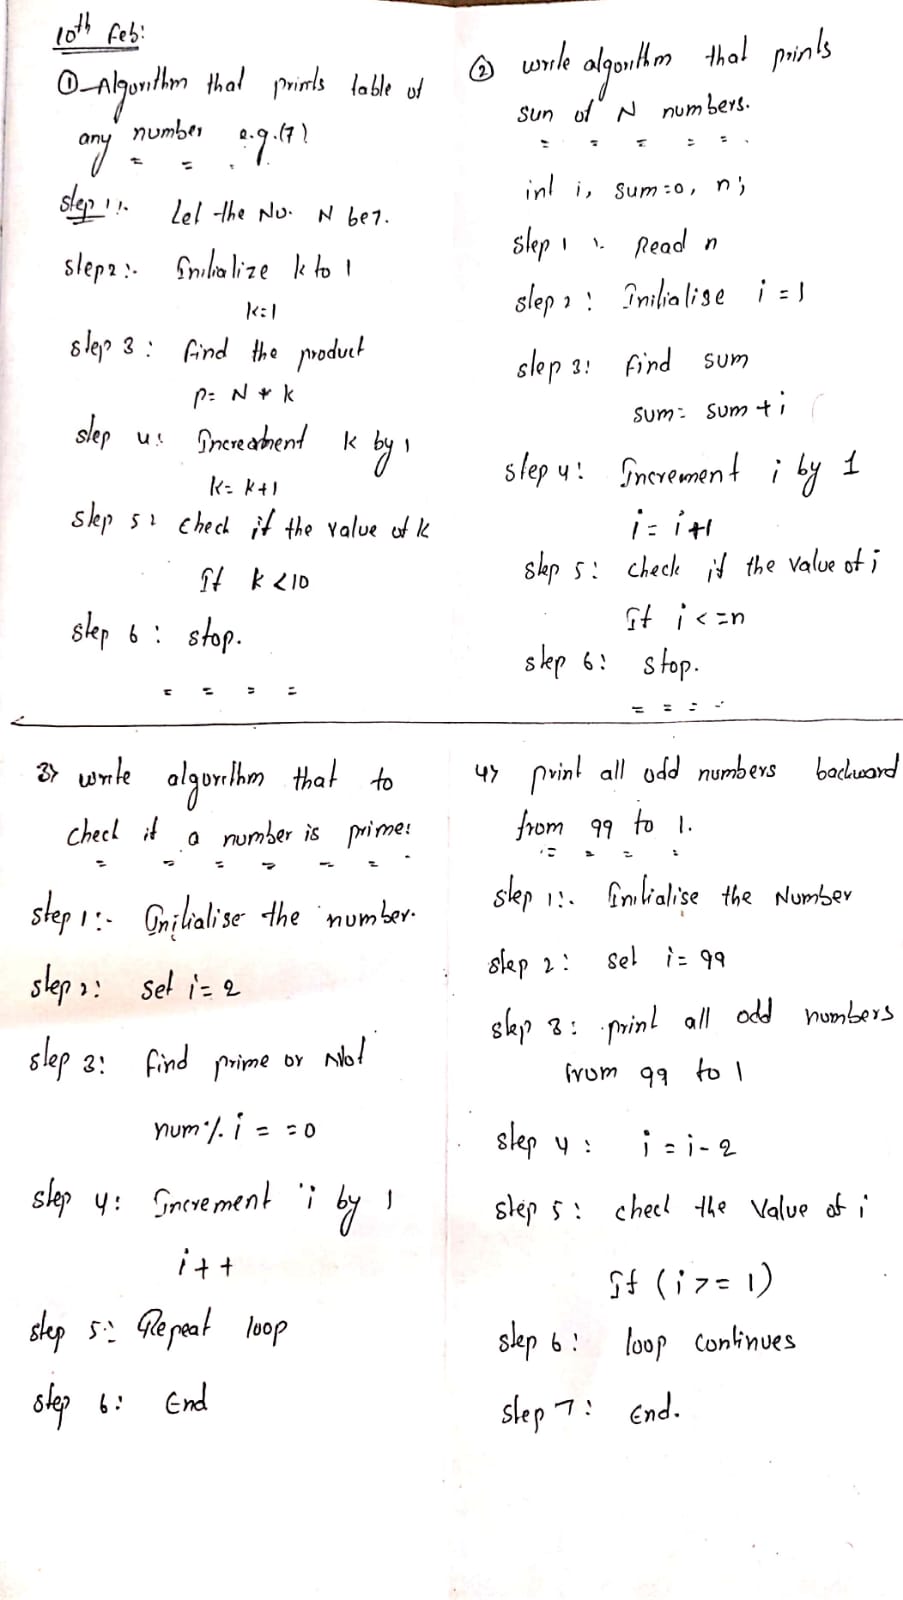 10th Feb:
① Algorithm that prints table of
any number e.g.(7)
step 1:- Let the No. N be 7.
step 2:- Initialize k to 1
k=1
step 3: find the product
p= N * k
step 4: Increment k by 1
k= k+1
step 5: check if the value of k
If k <10
step 6: stop.
② write algorithm that prints
sun of N numbers.
int i, sum=0, n;
step 1:- Read n
step 2: Initialise i = 1
step 3: find sum
sum= sum + i
step 4: Increment i by 1
i = i+1
step 5: check if the value of i
If i <=n
step 6: stop.
3> write algorithm that to
check if a number is prime:
step 1:- Initialise the number.
step 2: set i= 2
step 3: find prime or Not
num % i = =0
step 4: Increment i by 1
i++
step 5:- Repeat loop
step 6: End
4> print all odd numbers backward
from 99 to 1.
step 1:- Initialise the Number
step 2: set i= 99
step 3: print all odd numbers
from 99 to 1
step 4: i = i-2
step 5: check the Value of i
If (i >= 1)
step 6: loop continues
step 7: End.